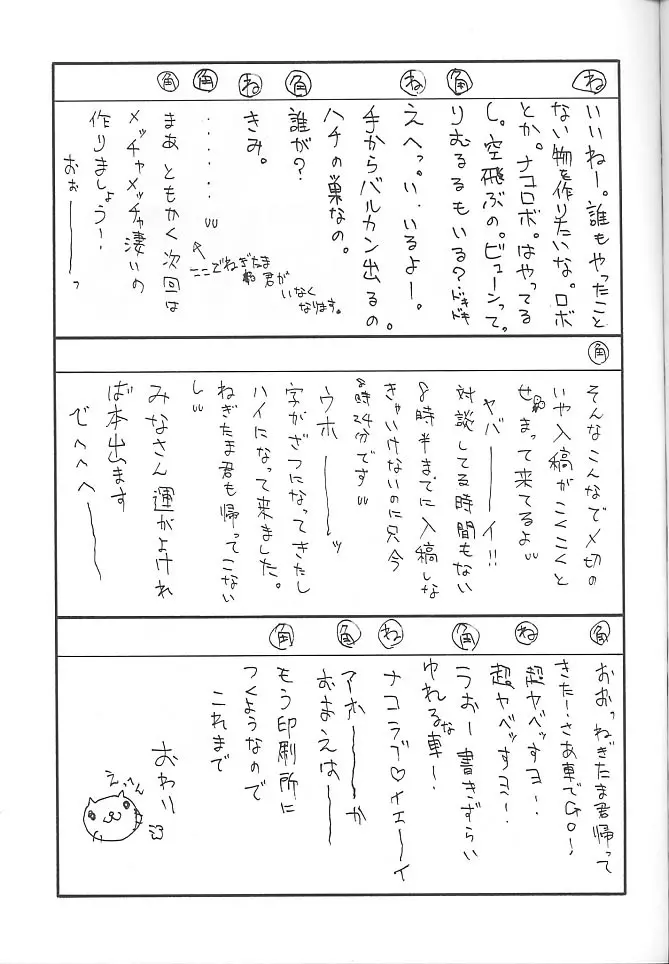 ね
いいねー。誰もやったこと
ない物を作りたいな。ロボ
とか。ナコロボ。はやってる
し。空飛ぶの。ビューンって。
角
りむるるもいる?ドキドキ
ね
えへっ。い、いるよー。
手からバルカン出るの。
ハチの巣なの。
角
誰が?
ね
きみ。
角
・・・・・・
ここでねぎたま
君が
いなく
なります。
角
まぁともかく次回は
メッチャメッチャ凄いの
作りましょう!
おぉーーーっ
角
そんなこんなで〆切の
いや入稿がこくこくと
せまって来てるよ
ヤバーーーイ!!
対談してる時間もない
8時半までに入稿しな
きゃいけないのに只今
8時24分です
ウホーーーッ
字がざつになってきたし
ハイになって来ました。
ねぎたま君も帰ってこない
し
みなさん運がよけれ
ば本出ます
でへへへーーー
角
おおっねぎたま君帰って
きた!さあ車でGO!
ね
超ヤベッすヨ!
超ヤベッすヨ!
角
うおー書きずらい
ゆれるな車!
ね
ナコラブ♡イエーイ
角
アホーーーか
おまえはーーー
角
もう印刷所に
つくようなので
これまで
おわり
えってん